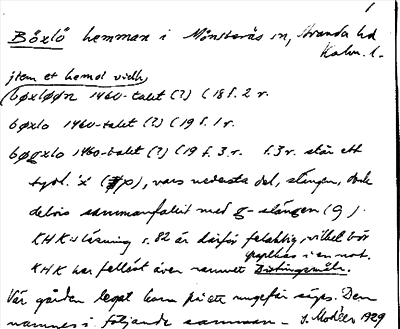 1
Böxlö hemman i Mönsterås sn, Stranda hd
Kalm. l.
jtem et hemol vidh
bøxløøn 1460-talet (?) C 18 f. 2 r.
bøxlo 1460-talet (?) C 19 f. 1 r.
bøgxlo 1460-talet (?) C 19 f. 3. r. f. 3 r. står ett
tydl. 'x' vars nedersta del, slängen, dock
delvis sammanfallit med g-slängen (g).
KHKs läsning s. 82 är därför felaktig, vilket bör
påpekas i en not.
KHK har felläst även namnet
Var gården legat kan ej ett ungefär sägas. Den
nämnes i följande samman- J. Modéer 1929